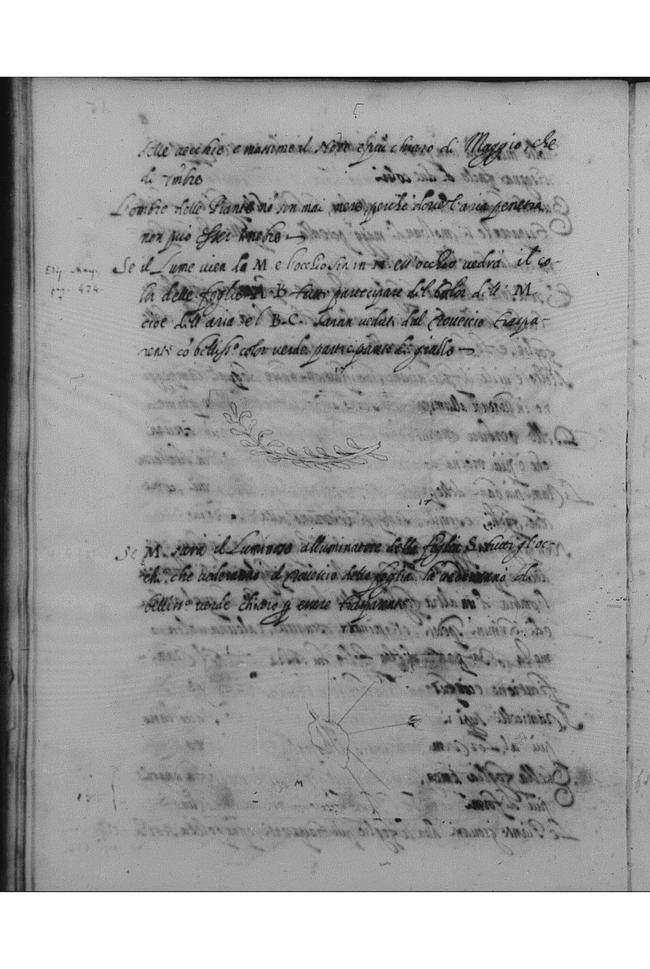 delle vecchie, e massime il Noce e piu chiaro di Maggio, che
di 7mbre
L'ombre delle Piante nõ son mai nere perche dove l'aria penetra
non puo esser tenebre
Se il Lume vien da M e l'occhio sia in N. ess'occhio vedrà il co-
lor delle foglie A B tutte partecipare del Color dell' M
cioe dell'aria e 'l B. C. saran vedute dal rovescio traspa-
renti cõ belliss.º color verde participante di giallo
Se M. sarà il Luminoso alluminatore della foglia S. tutti gl'oc-
chi, che vederanno il rovescio della foglia la vederanno di
bellissº verde chiaro